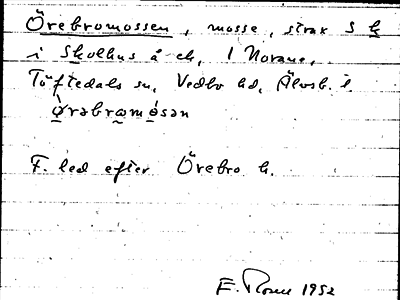 Örebromossen, mosse, strax S h
i Skolhus å ek. 1 Norane,
Töftedals sn, Vedbo hd, Älvsb. l.
ørəbramosən
F. led efter Örebro h.
E. Rosen 1952